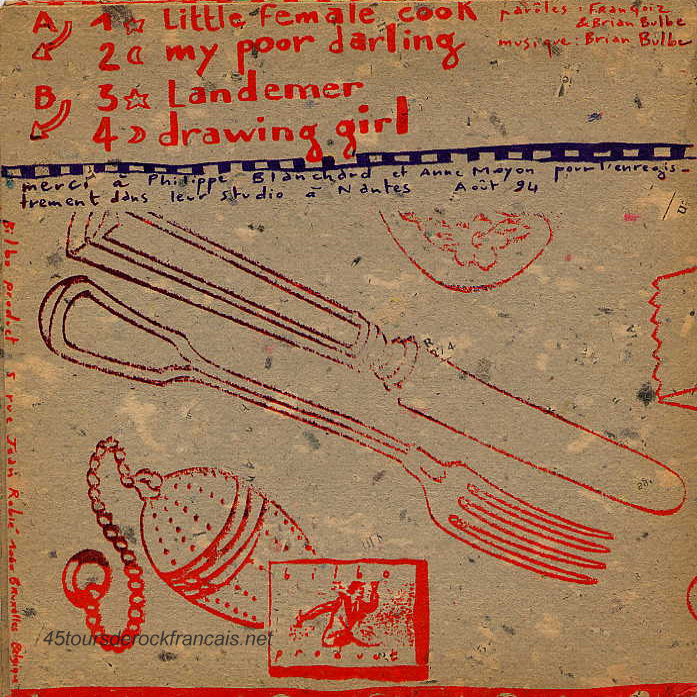 A 1 ☆ Little female cook
2 my poor darling
B 3 ☆ Landemer
4 drawing girl
paroles : Françoiz
& Brian Bulbe
musique : Brian Bulbe
merci à Philippe Blanchard et Anne Moyon pour l'enregis-
trement dans leur Studio à Nantes Août 94
Bilbo product 5 rue Jean Robie Bruxelles Belgique
bilbo
product
45toursderockfrancais.net